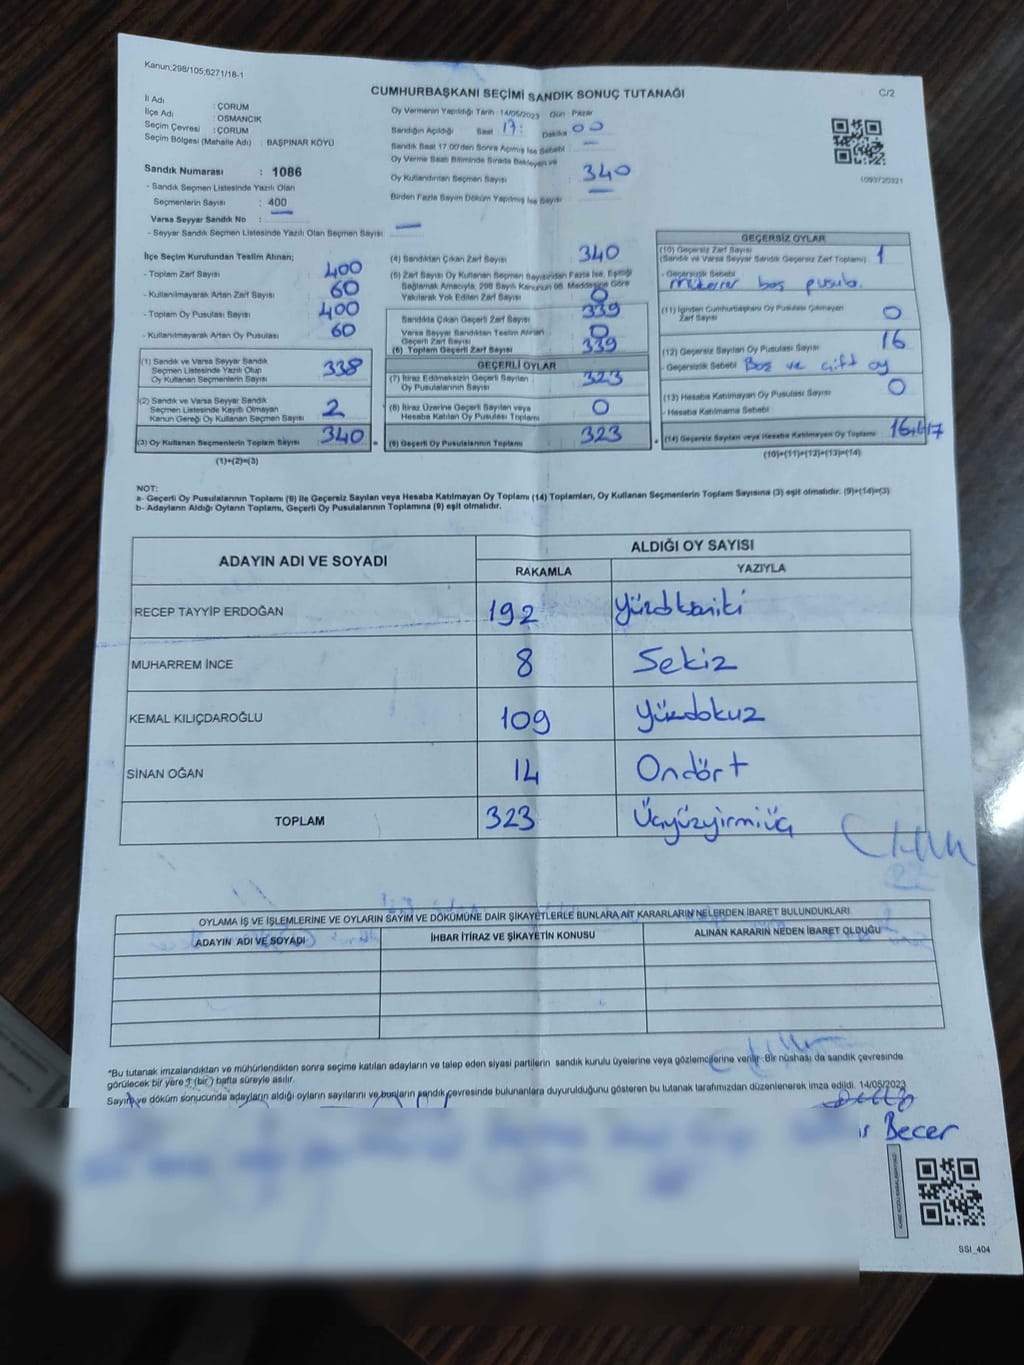 Kanun;298/105;6271/18-1
CUMHURBAŞKANI SEÇİMİ SANDIK SONUÇ TUTANAĞI
C/2
İl Adı : ÇORUM
İlçe Adı : OSMANCIK
Seçim Çevresi : ÇORUM
Seçim Bölgesi (Mahalle Adı) : BAŞPINAR KÖYÜ
Oy Vermenin Yapıldığı Tarih :14/05/2023 Gün : Pazar
Sandığın Açıldığı Saat 17: Dakika 00
Sandık Saat 17:00'den Sonra Açılmış İse Sebebi : —
Oy Verme Saati Bitiminde Sırada Bekleyen ve
Oy Kullandırılan Seçmen Sayısı : 340
Birden Fazla Sayım Döküm Yapılmış İse Sayısı : —
Sandık Numarası : 1086
- Sandık Seçmen Listesinde Yazılı Olan
Seçmenlerin Sayısı : 400
Varsa Seyyar Sandık No : —
- Seyyar Sandık Seçmen Listesinde Yazılı Olan Seçmen Sayısı : —
İlçe Seçim Kurulundan Teslim Alınan;
- Toplam Zarf Sayısı 400
- Kullanılmayarak Artan Zarf Sayısı 60
- Toplam Oy Pusulası Sayısı 400
- Kullanılmayarak Artan Oy Pusulası 60
(1) Sandık ve Varsa Seyyar Sandık
Seçmen Listesinde Yazılı Olup
Oy Kullanan Seçmenlerin Sayısı 338
(2) Sandık ve Varsa Seyyar Sandık
Seçmen Listesinde Kayıtlı Olmayan
Kanun Gereği Oy Kullanan Seçmen Sayısı 2
(3) Oy Kullanan Seçmenlerin Toplam Sayısı 340 =
(1)+(2)=(3)
(4) Sandıktan Çıkan Zarf Sayısı 340
(5) Zarf Sayısı Oy Kullanan Seçmen Sayısından Fazla İse, Eşitliği
Sağlamak Amacıyla, 298 Sayılı Kanunun 98. Maddesine Göre
Yakılarak Yok Edilen Zarf Sayısı 0
Sandıkta Çıkan Geçerli Zarf Sayısı 339
Varsa Seyyar Sandıktan Teslim Alınan
Geçerli Zarf Sayısı 0
(6) Toplam Geçerli Zarf Sayısı 339
GEÇERLİ OYLAR
(7) İtiraz Edilmeksizin Geçerli Sayılan
Oy Pusulalarının Sayısı 323
(8) İtiraz Üzerine Geçerli Sayılan veya
Hesaba Katılan Oy Pusulası Toplamı 0
(9) Geçerli Oy Pusulalarının Toplamı 323
GEÇERSİZ OYLAR
(10) Geçersiz Zarf Sayısı
(Sandık ve Varsa Seyyar Sandık Geçersiz Zarf Toplamı) 1
- Geçersizlik Sebebi
mükerrer boş pusula.
(11) İçinden Cumhurbaşkanı Oy Pusulası Çıkmayan
Zarf Sayısı 0
(12) Geçersiz Sayılan Oy Pusulası Sayısı 16
- Geçersizlik Sebebi Boş ve çift oy
(13) Hesaba Katılmayan Oy Pusulası Sayısı 0
- Hesaba Katılmama Sebebi
(14) Geçersiz Sayılan veya Hesaba Katılmayan Oy Toplamı
(10)+(11)+(12)+(13)=(14)
NOT:
a- Geçerli Oy Pusulalarının Toplamı (9) ile Geçersiz Sayılan veya Hesaba Katılmayan Oy Toplamı (14) Toplamları, Oy Kullanan Seçmenlerin Toplam Sayısına (3) eşit olmalıdır. (9)+(14)=(3)
b- Adayların Aldığı Oyların Toplamı, Geçerli Oy Pusulalarının Toplamına (9) eşit olmalıdır.
ADAYIN ADI VE SOYADI
ALDIĞI OY SAYISI
RAKAMLA YAZIYLA
RECEP TAYYİP ERDOĞAN 192
MUHARREM İNCE 8 Sekiz
KEMAL KILIÇDAROĞLU 109 Yüzdokuz
SİNAN OĞAN 14 Ondört
TOPLAM 323 Üçyüzyirmiüç
OYLAMA İŞ VE İŞLEMLERİNE VE OYLARIN SAYIM VE DÖKÜMÜNE DAİR ŞİKAYETLERLE BUNLARA AİT KARARLARIN NELERDEN İBARET BULUNDUKLARI
ADAYIN ADI VE SOYADI İHBAR İTİRAZ VE ŞİKAYETİN KONUSU ALINAN KARARIN NEDEN İBARET OLDUĞU
*Bu tutanak imzalandıktan ve mühürlendikten sonra seçime katılan adayların ve talep eden siyasi partilerin sandık kurulu üyelerine veya gözlemcilerine verilir. Bir nüshası da sandık çevresinde
görülecek bir yere 1 (bir) hafta süreyle asılır.
Sayım ve döküm sonucunda adayların aldığı oyların sayılarını ve bunların sandık çevresinde bulunanlara duyurulduğunu gösteren bu tutanak tarafımızdan düzenlenerek imza edildi. 14/05/2023
Becer
SSI_404